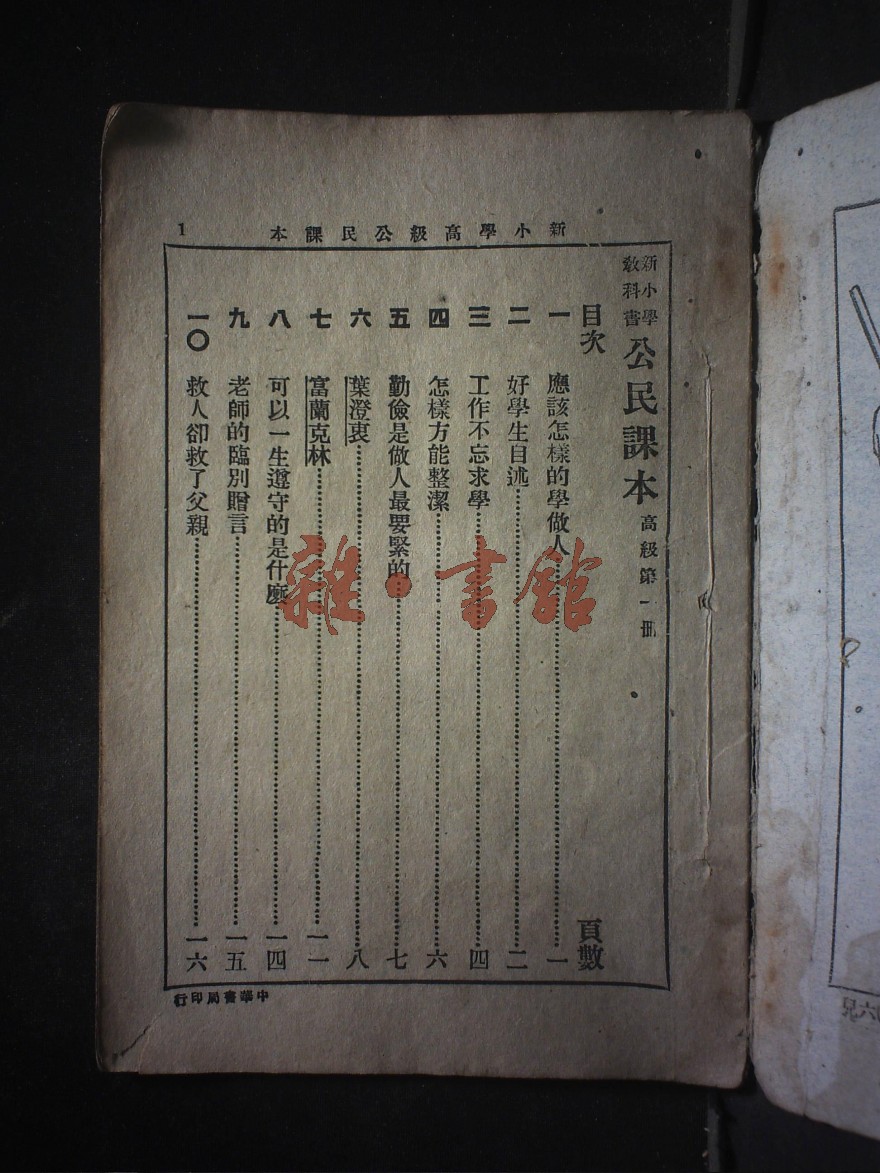 新小學高級公民課本
1
新小學教科書 公民課本 高級第一冊
目次 頁數
一 應該怎樣的學做人 一
二 好學生自述 二
三 工作不忘求學 四
四 怎樣方能整潔 六
五 勤儉是做人最要緊的 七
六 葉澄衷 八
七 富蘭克林 一一
八 可以一生遵守的是什麼 一四
九 老師的臨別贈言 一五
一〇 救人卻救了父親 一六
中華書局印行
雜·書館